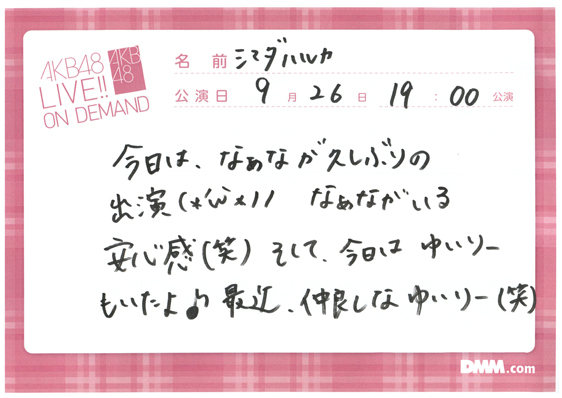 AKB48
LIVE!!
ON DEMAND
AKB
48
名 前 シマダハルカ
公演日 9 月 26 日 19 : 00 公演
今日は、なぁなが久しぶりの
出演(*´ω`*)ノ なぁながいる
安心感(笑) そして、今日は ゆいりー
もいたよ♪ 最近、仲良しな ゆいりー(笑)
DMM.com